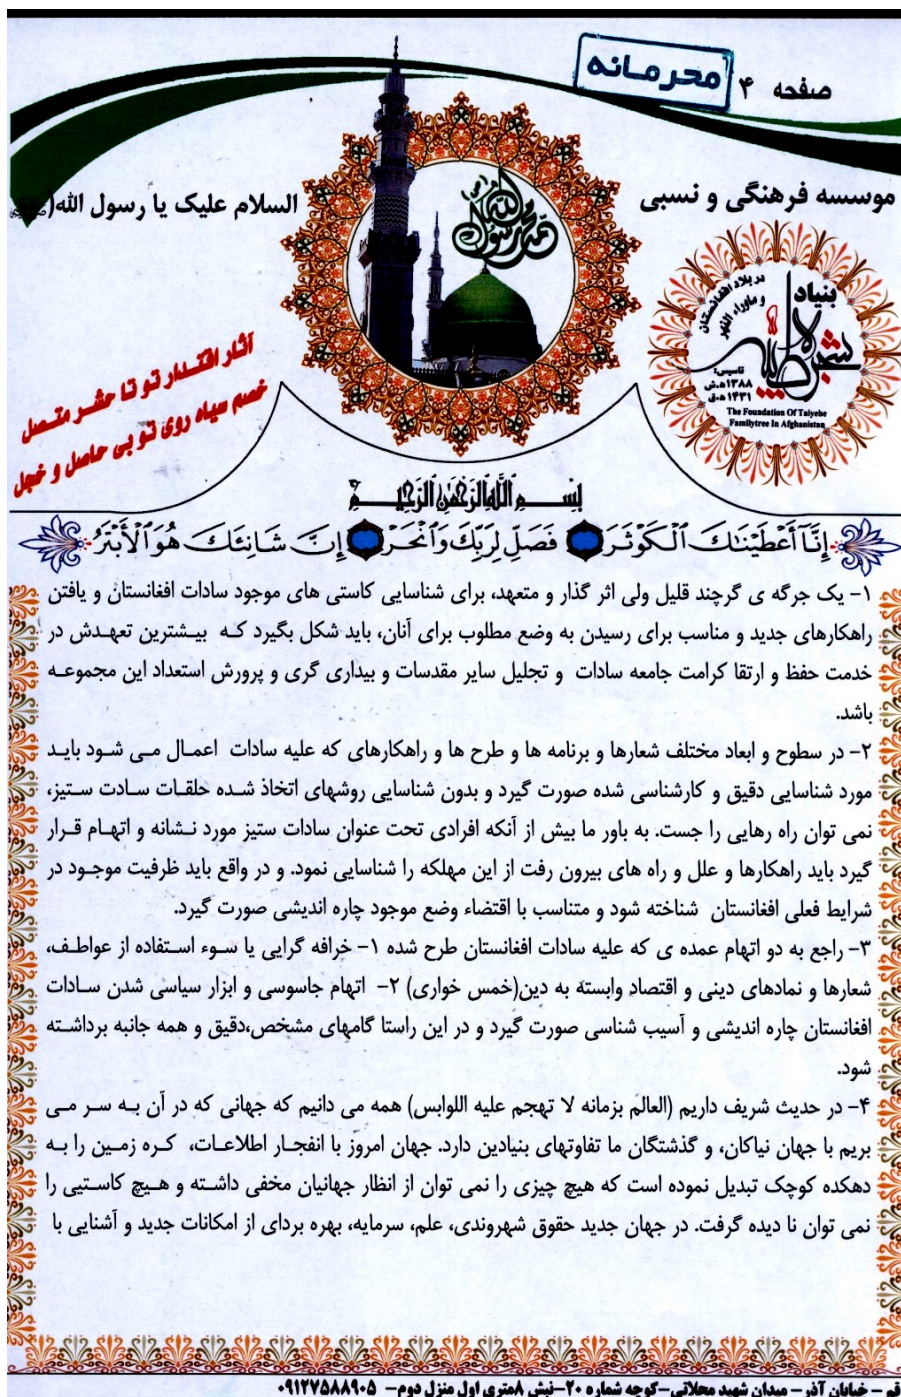 صفحه ۴
محرمانه
موسسه فرهنگی و نسبی
السلام علیک یا رسول الله(
محمد رسول الله
بنیاد
شجره طیبه
در بلاد افغانستان
و ماوراء النهر
تاسیس:
۱۳۸۸ه.ش
۱۴۳۱ه.ق
The Foundation Of Taiyebe
Familytree In Afghanistan
آثار اقتـدار تو تا حشر متـصل
خصم سیاه روی تو بی حاصل و خجل
بسم الله الرحمن الرحیم
إِنَّا أَعْطَيْنَاكَ الْكَوْثَرَ فَصَلِّ لِرَبِّكَ وَانْحَرْ إِنَّ شَانِئَكَ هُوَ الْأَبْتَرُ
۱- یک جرگه ی گرچند قلیل ولی اثر گذار و متعهد، برای شناسایی کاستی های موجود سادات افغانستان و یافتن
راهکارهای جدید و مناسب برای رسیدن به وضع مطلوب برای آنان، باید شکل بگیرد کـه بیـشترین تعهـدش در
خدمت حفظ و ارتقا کرامت جامعه سادات و تجلیل سایر مقدسات و بیداری گری و پرورش استعداد این مجموعـه
باشد.
۲- در سطوح و ابعاد مختلف شعارها و برنامه ها و طرح ها و راهکارهای که علیه سادات اعمـال مـی شـود بایـد
مورد شناسایی دقیق و کارشناسی شده صورت گیرد و بدون شناسایی روشهای اتخاذ شـده حلقـات سـادت سـتیز،
نمی توان راه رهایی را جست. به باور ما بیش از آنکه افرادی تحت عنوان سادات ستیز مورد نـشانه و اتهـام قـرار
گیرد باید راهکارها و علل و راه های بیرون رفت از این مهلکه را شناسایی نمود. و در واقع باید ظرفیت موجـود در
شرایط فعلی افغانستان شناخته شود و متناسب با اقتضاء وضع موجود چاره اندیشی صورت گیرد.
۳- راجع به دو اتهام عمده ی که علیه سادات افغانستان طرح شده ۱- خرافه گرایی یا سـوء اسـتفاده از عواطـف،
شعارها و نمادهای دینی و اقتصاد وابسته به دین(خمس خواری) ۲- اتهام جاسوسی و ابزار سیاسی شدن سـادات
افغانستان چاره اندیشی و آسیب شناسی صورت گیرد و در این راستا گامهای مشخص،دقیق و همه جانبه برداشـته
شود.
۴- در حدیث شریف داریم (العالم بزمانه لا تهجم علیه اللوابس) همه می دانیم که جهانی که در آن بـه سـر مـی
بریم با جهان نیاکان، و گذشتگان ما تفاوتهای بنیادین دارد. جهان امروز با انفجـار اطلاعـات، کـره زمـین را بـه
دهکده کوچک تبدیل نموده است که هیچ چیزی را نمی توان از انظار جهانیان مخفی داشـته و هـیچ کاسـتیی را
نمی توان نا دیده گرفت. در جهان جدید حقوق شهروندی، علم، سرمایه، بهره بردای از امکانات جدید و آشنایی با
قم – خیابان آذر – میدان شهید محلاتی–کوچه شماره ۲۰–نبش ۸متری اول منزل دوم– ۰۹۱۲۷۵۸۸۹۰۵